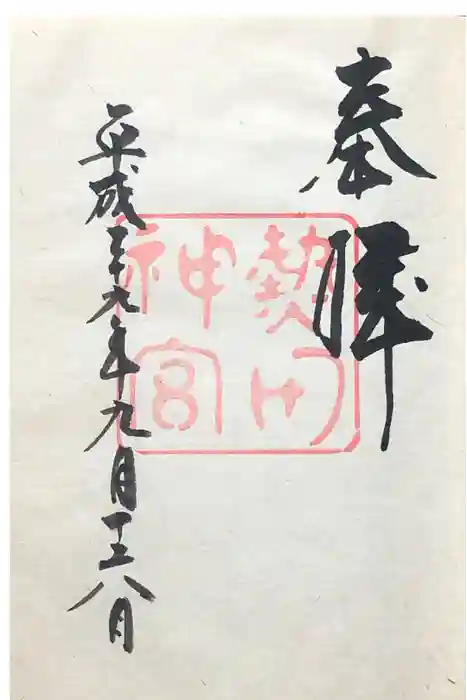 奉拝
熱田
神宮
平成二十九年九月二十八日